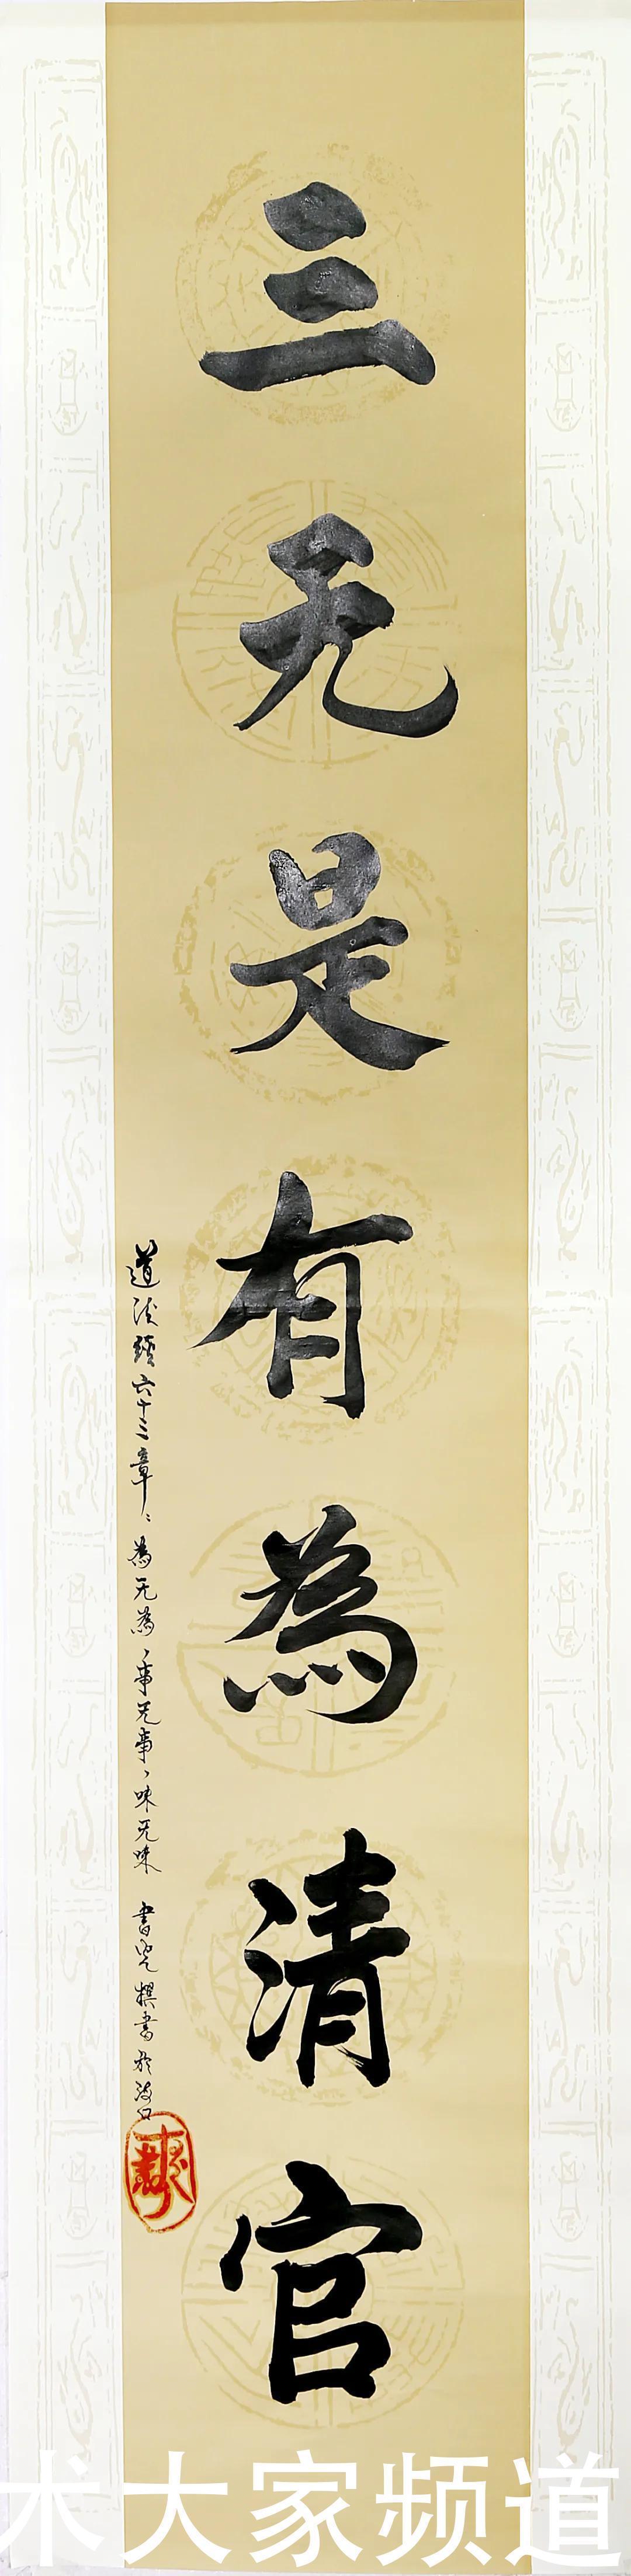 三无是有為清官
道德經六十三章：為无為、事无事、味无味 書亮撰書於海口
术大家频道